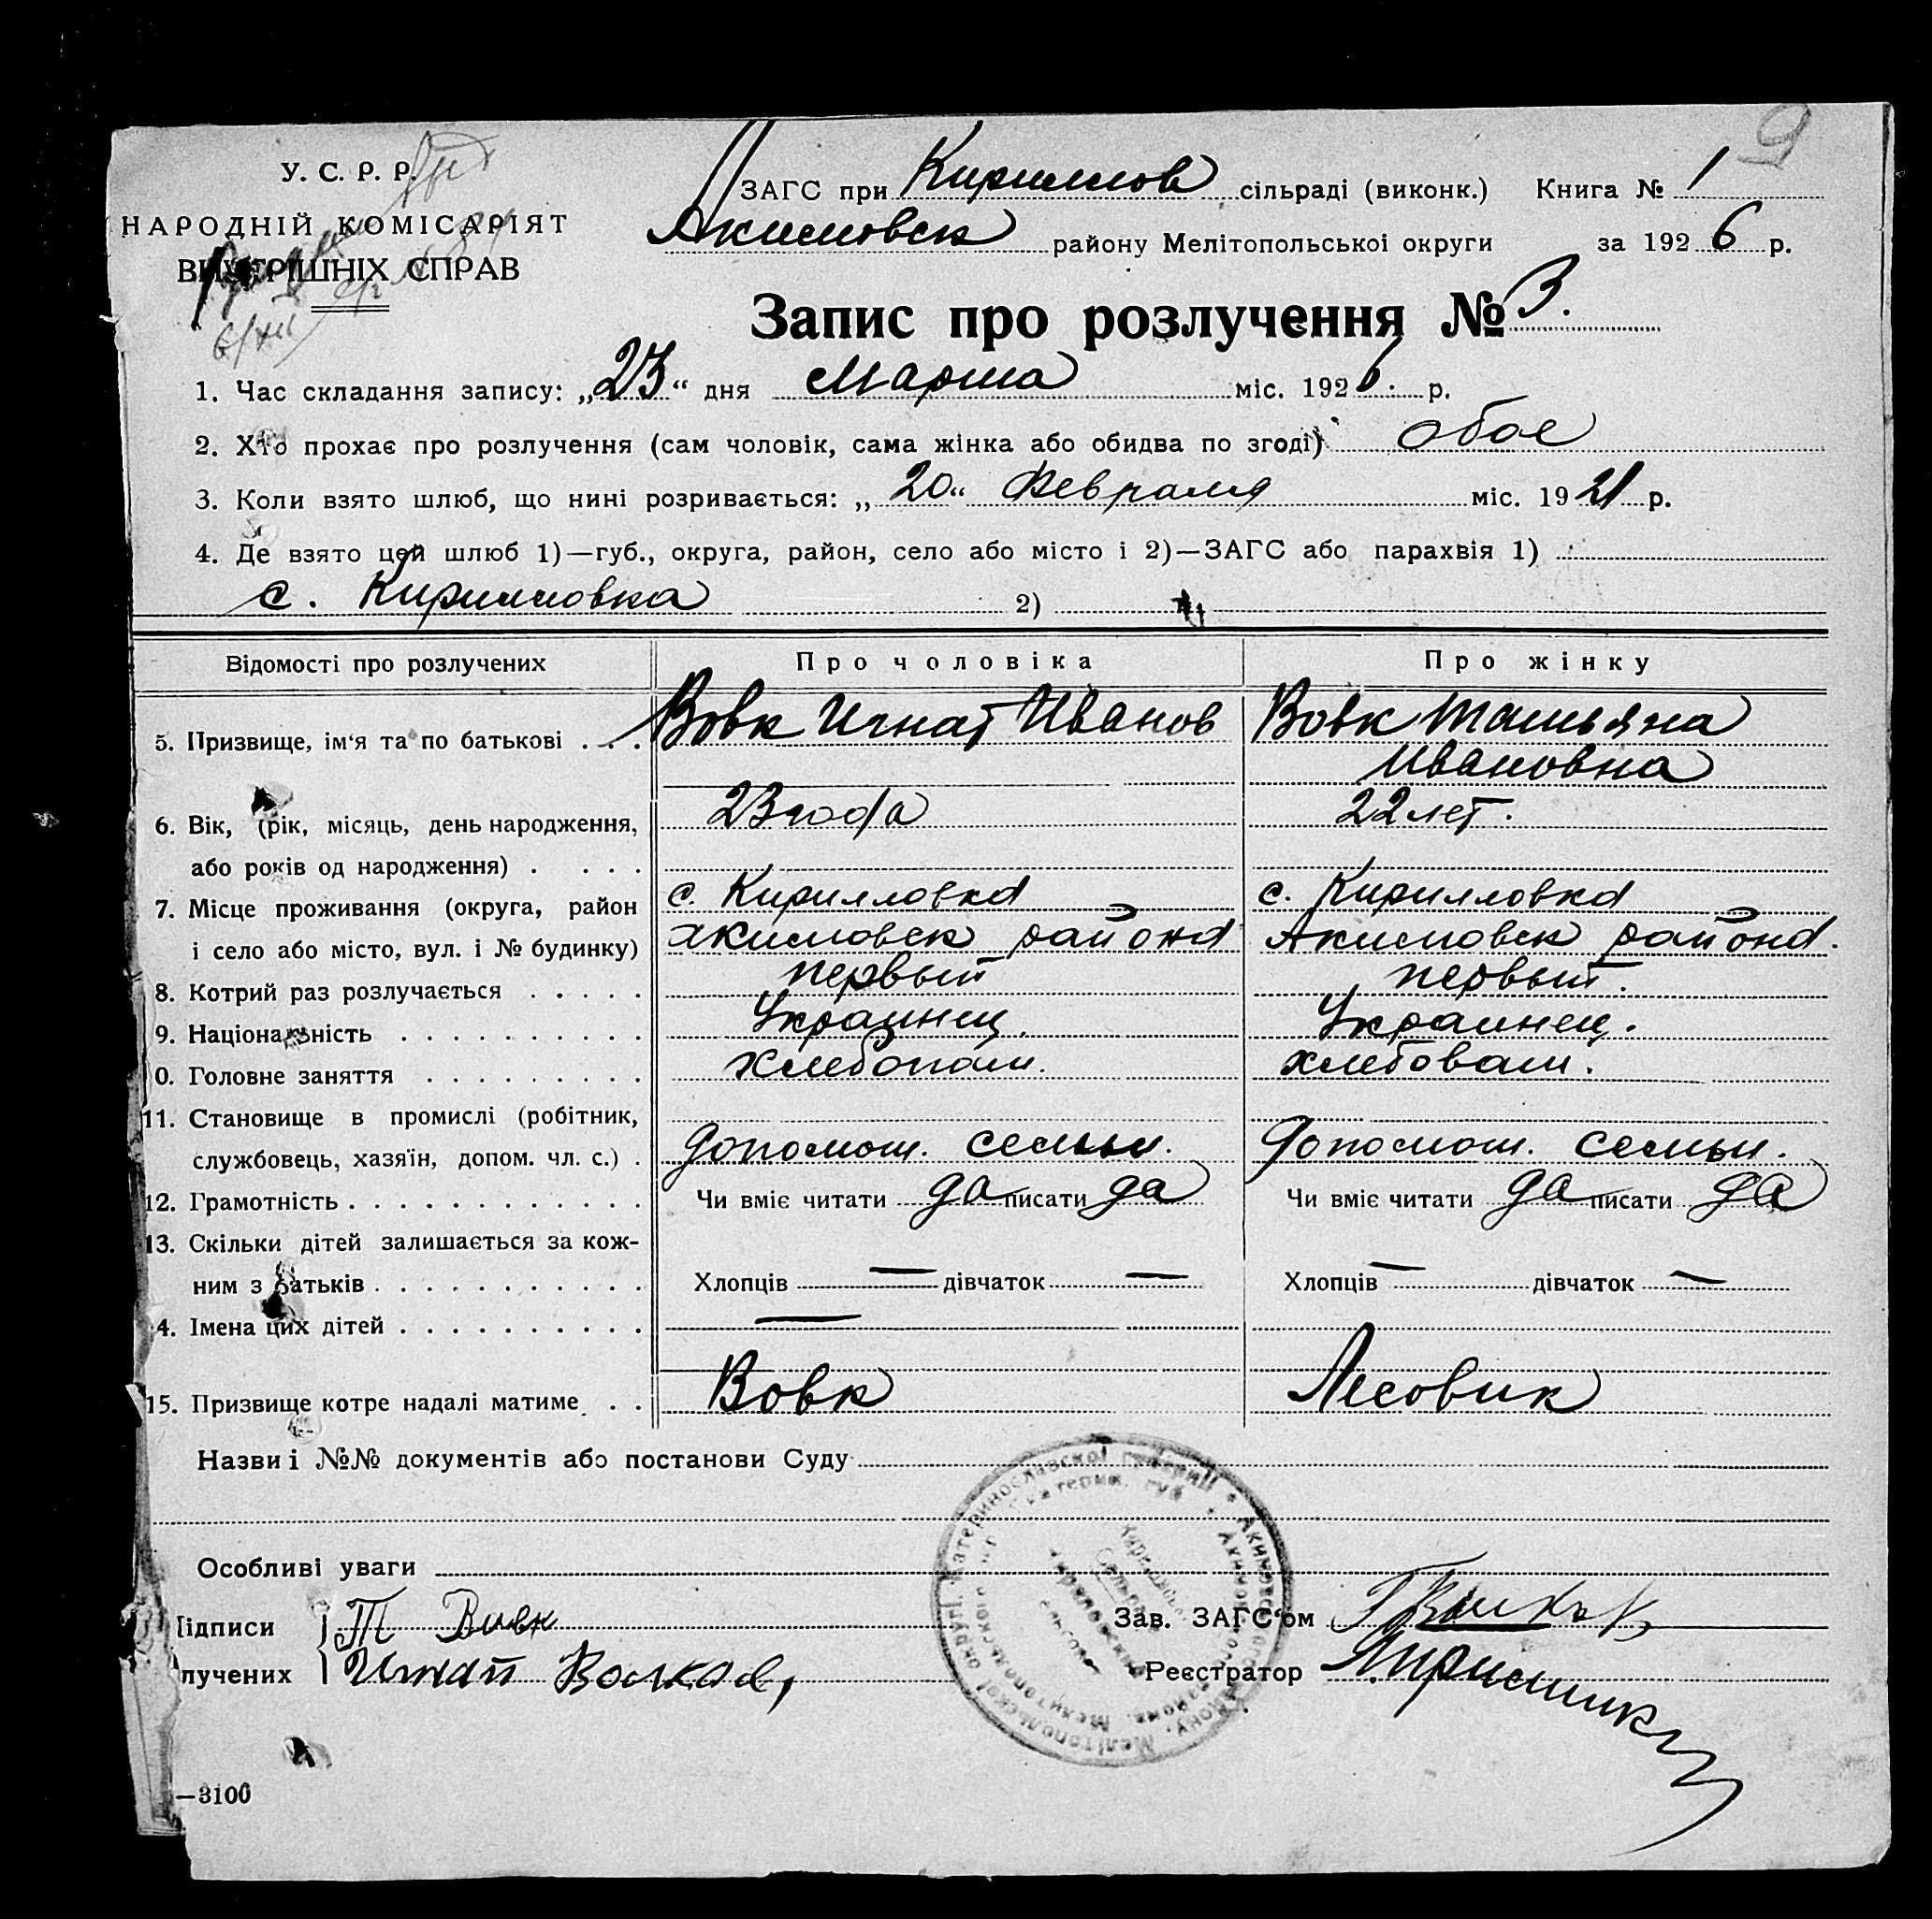 У. С. Р. Р.
НАРОДНІЙ КОМІСАРІЯТ
ВНУТРІШНІХ СПРАВ
6/XII
9
ЗАГС при Кирилов сільраді (виконк.) Книга № 1
Акимовск району Мелітопольської округи за 1926 р.
Запис про розлучення № 3.
1. Час складання запису: „23“ дня Марта міс. 1926. р.
2. Хто прохає про розлучення (сам чоловік, сама жінка або обидва по згоді) обое
3. Коли взято шлюб, що нині розривається: „20“ Февраля міс. 1921 р.
4. Де взято цей шлюб 1)—губ., округа, район, село або місто і 2)—ЗАГС або парахвія 1)
с. Кирилловка 2)
Відомості про розлучених Про чоловіка Про жінку
5. Призвище, ім‘я та по батькові . . . Вовк Игнат Иванов Вовк Татьяна
Ивановна
6. Вік, (рік, місяць, день народження, 23 года 22 лет.
або років од народження) . . . . .
7. Місце проживання (округа, район с. Кирилловка с. Кирилловка
і село або місто, вул. і № будинку) Акимовск района Акимовск района.
8. Котрий раз розлучається . . . . . первый первый.
9. Національність . . . . . . . . . . Украинец. Украинец.
0. Головне заняття . . . . . . . . . хлебопаш. хлебопаш.
11. Становище в промислі (робітник,
службовець, хазяїн, допом. чл. с.) . допомот. семьи. допомот. семьи.
12. Грамотність . . . . . . . . . . . . Чи вміє читати да писати да Чи вміє читати да писати да
13. Скільки дітей залишається за кож-
ним з батьків . . . . . . . . . . . Хлопців — дівчаток — Хлопців — дівчаток —
4. Імена цих дітей . . . . . . . . . . —
15. Призвище котре надалі матиме . . Вовк Лесовик
Назви і №№ документів або постанови Суду
Особливі уваги
Підписи Т Вовк Зав. ЗАГС‘ом
лучених Игнат Волков, Реєстратор
Мелітопольскої округі, Катеринославскої губерниї
—3100